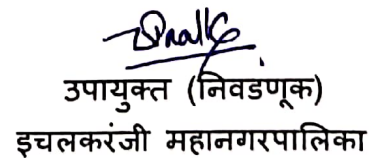 उपायुक्त (निवडणूक)
इचलकरंजी महानगरपालिका